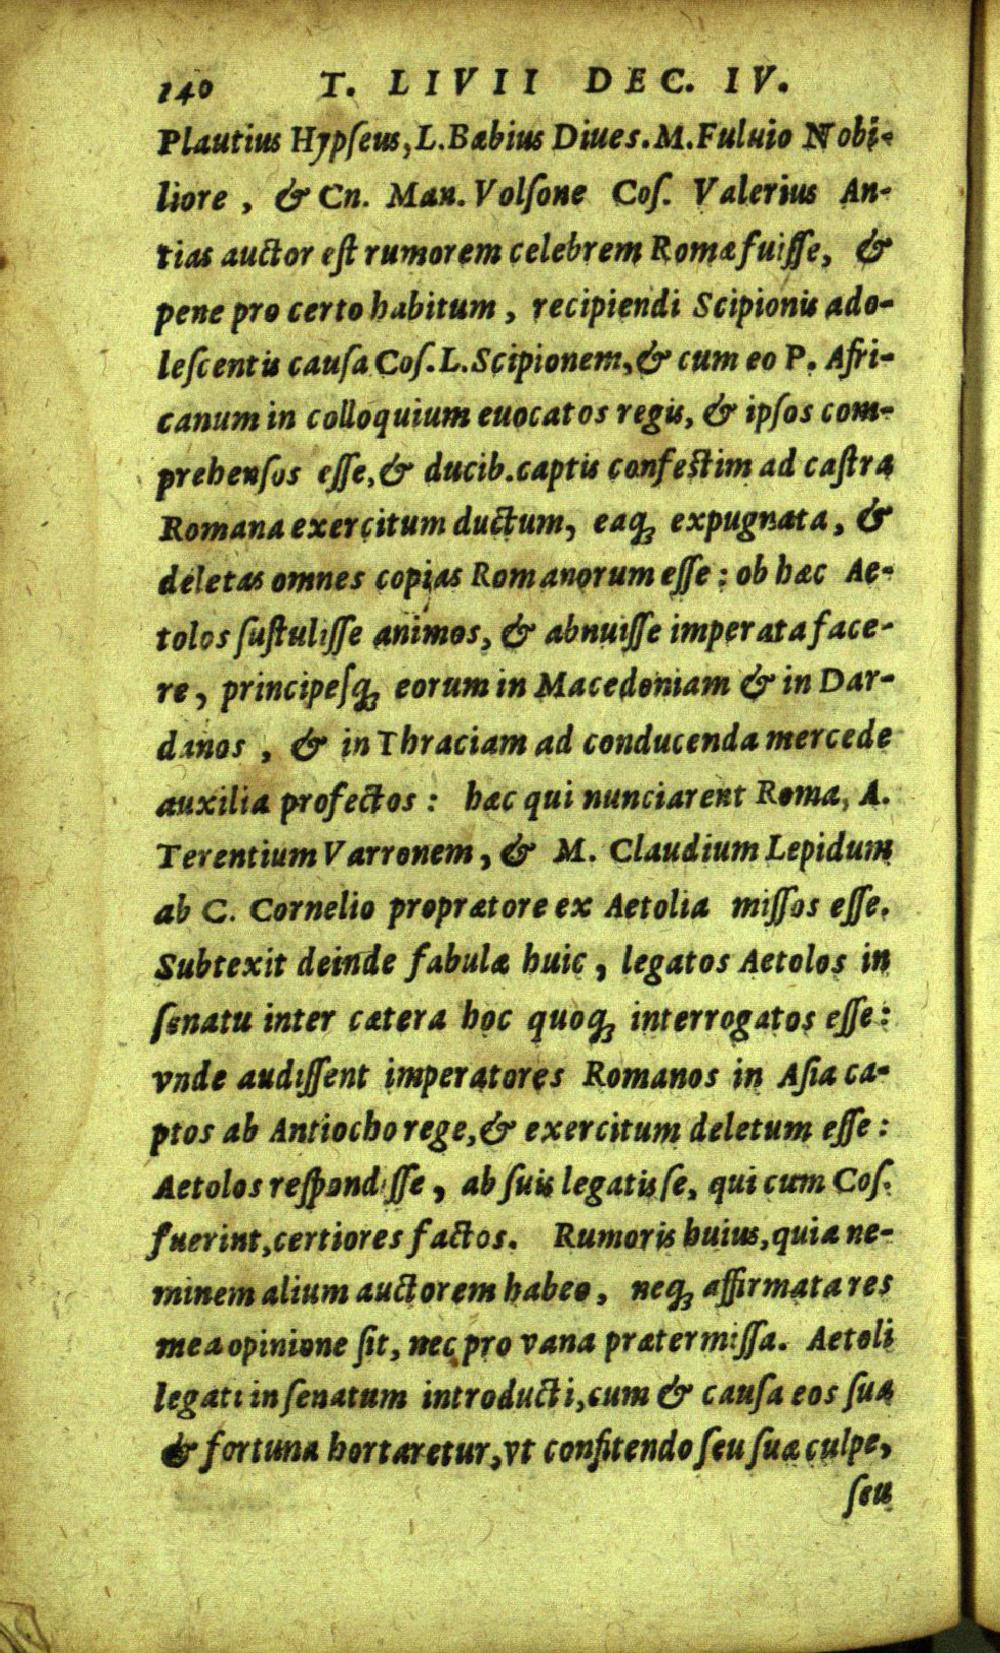 140 T. LIVII DEC. IV.
Plautius Hypſeus, L. Bæbius Diues. M. Fuluio Nobi-
liore, & Cn. Man. Volſone Coſ. Valerius An-
tias auctor eſt rumorem celebrem Romæ fuiſſe, &
pene pro certo habitum, recipiendi Scipionis ado-
leſcentis cauſa Coſ. L. Scipionem, & cum eo P. Afri-
canum in colloquium euocatos regis, & ipſos com-
prehenſos eſſe, & ducib. captis confeſtim ad caſtra
Romana exercitum ductum, eaq; expugnata, &
deletas omnes copias Romanorum eſſe: ob hæc Ae-
tolos ſuſtuliſſe animos, & abnuiſſe imperata face-
re, principeſq; eorum in Macedoniam & in Dar-
danos, & in Thraciam ad conducenda mercede
auxilia profectos: hæc qui nunciarent Roma, A.
Terentium Varronem, & M. Claudium Lepidum
ab C. Cornelio proprætore ex Aetolia miſſos eſſe.
Subtexit deinde fabulæ huic, legatos Aetolos in
ſenatu inter cætera hoc quoq; interrogatos eſſe:
vnde audiſſent imperatores Romanos in Aſia ca-
ptos ab Antiocho rege, & exercitum deletum eſſe:
Aetolos reſpondiſſe, ab ſuis legatis ſe, qui cum Coſ.
fuerint, certiores factos. Rumoris huius, quia ne-
minem alium auctorem habeo, neq; affirmata res
mea opinione ſit, nec pro vana prætermiſſa. Aetoli
legati in ſenatum introducti, cum & cauſa eos ſua
& fortuna hortaretur, vt confitendo ſeu ſuæ culpe,
ſeu